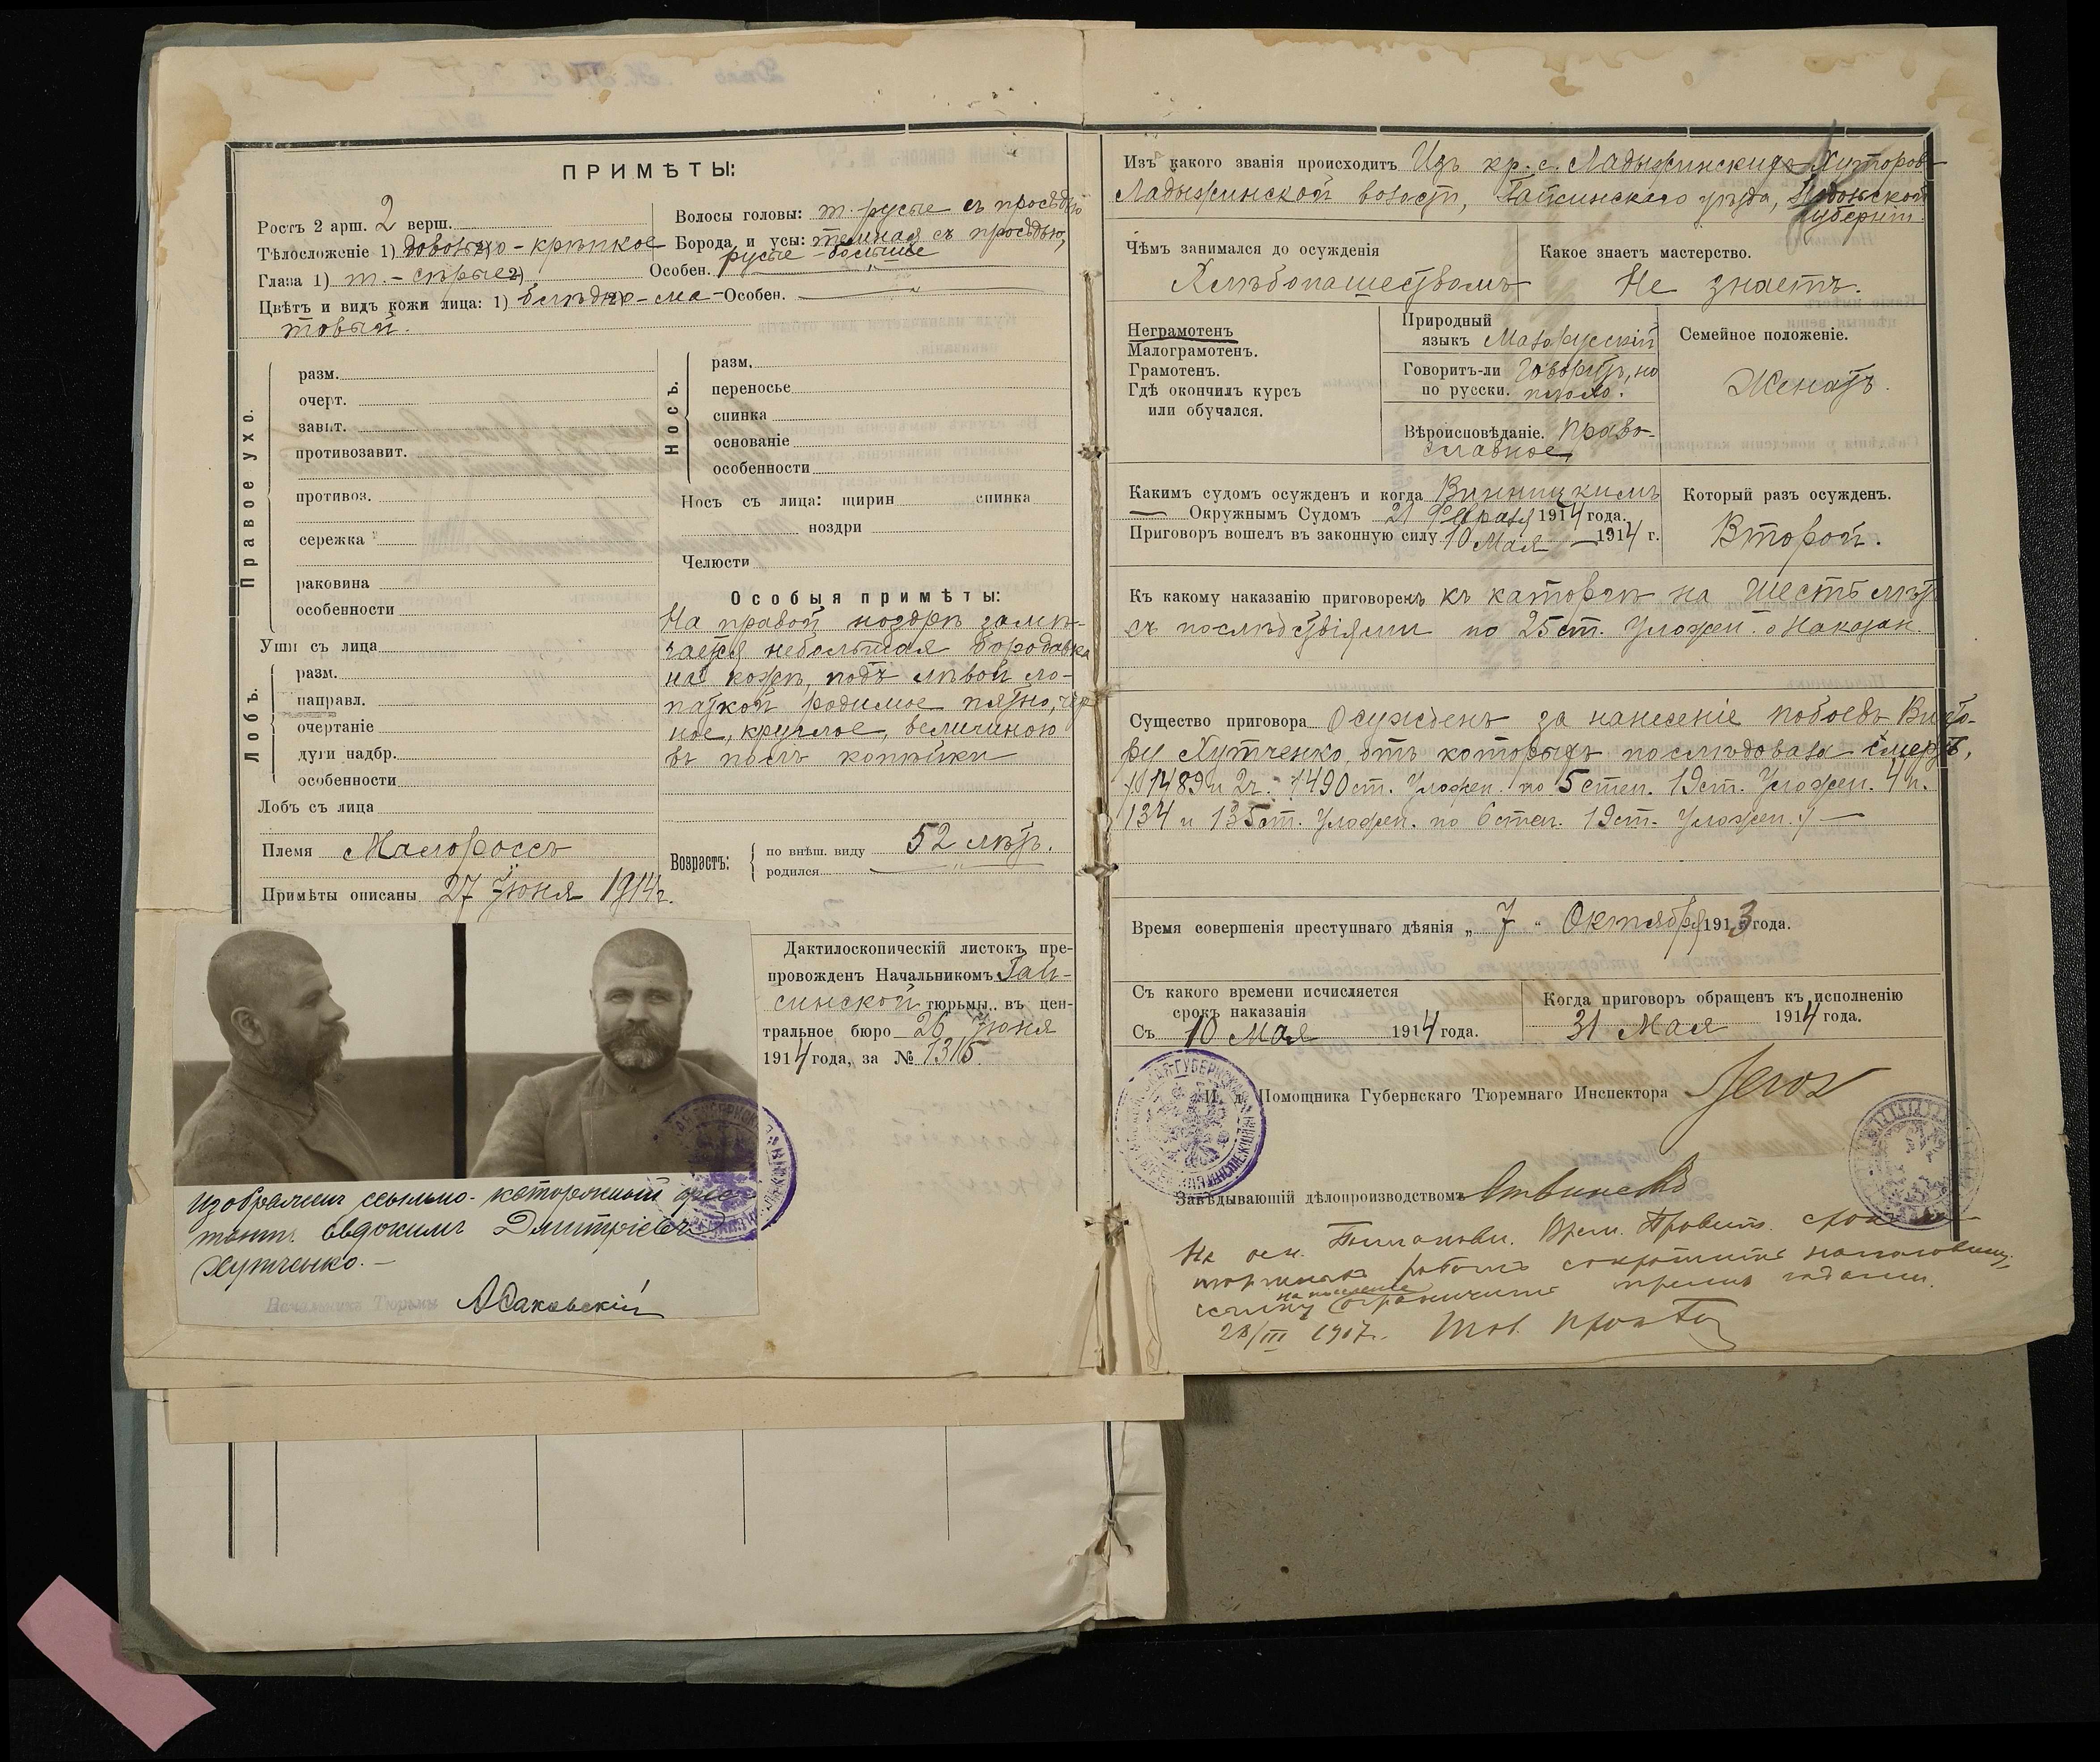 ПРИМѢТЫ:
Ростъ 2 арш. 2 верш.
Тѣлосложеніе 1) довольно - крѣпкое 2)
Глаза 1) т. - сѣрые 2)
Особен.
Цвѣтъ и видъ кожи лица: 1) блѣдно - ма- 2)
Особен.
товый.
Волосы головы: т. русые съ просѣдью
Борода и усы: темная съ просѣдью,
русые - большіе
Правое ухо.
разм.
очерт.
завит.
противозавит.
противоз.
сережка
раковина
особенности
Уши съ лица
Лобъ.
разм.
направл.
очертаніе
дуги надбр.
особенности
Лобъ съ лица
Племя Малороссъ
Примѣты описаны 27 Іюня 1914 г.
Носъ.
разм.
переносье
спинка
основаніе
особенности
Носъ съ лица: ширин спинка
ноздри
Челюсти
Особыя примѣты:
На правой ноздрѣ замѣ-
чается небольшая бородавка
на кожѣ, подъ лѣвой ло-
паткой родимое пятно, чер
ное, круглое, величиною
въ полъ копѣйки
Возрастъ:
по внѣш. виду 52 лѣтъ.
родился
Дактилоскопическій листокъ пре-
провожденъ Начальникомъ Гай-
синской тюрьмы въ цен-
тральное бюро 26 Іюня
1914 года, за № 1315.
Изображенъ ссыльно-каторжный арес-
тантъ Евдокимъ Дмитріевъ
Хутченко. -
Начальникъ Тюрьмы
Изъ какого званія происходитъ Изъ кр. с. Ладыжинскихъ Хуторовъ
Ладыжинской волост, Гайсинскаго уѣзда, Подольской
губерніи.
Чѣмъ занимался до осужденія
Хлѣбопашествомъ
Какое знаетъ мастерство.
Не знаетъ.
Неграмотенъ
Малограмотенъ.
Грамотенъ.
Гдѣ окончилъ курсъ
или обучался.
Природный
языкъ Малорусскій
Говоритъ-ли Говоритъ, но
по русски. плохо.
Вѣроисповѣданіе. Право-
славное,
Семейное положеніе.
Женатъ.
Какимъ судомъ осужденъ и когда Винницкимъ
Окружнымъ Судомъ 21 Февраля 1914 года.
Приговоръ вошелъ въ законную силу 10 Мая 1914 г.
Который разъ осужденъ.
Второй.
Къ какому наказанію приговоренъ къ каторгѣ на шесть лѣтъ
съ послѣдствіями по 25 ст. Уложен. о Наказан.
Существо приговора Осужденъ за нанесеніе побоевъ
Хутченко, отъ которыхъ послѣдовала смерть,
1489 и 2 ч. 1490 ст. Уложен. по 5 степ. 19 ст. Уложен. 4 п.
134 и 135 ст. Уложен. по 6 степ. 19 ст. Уложен.
Время совершенія преступнаго дѣянія „ 7 “ Октября 1913 года.
Съ какого времени исчисляется
срокъ наказанія
Съ 10 Мая 1914 года.
Когда приговоръ обращенъ къ исполненію
31 Мая 1914 года.
И. д. Помощника Губернскаго Тюремнаго Инспектора
Завѣдывающій дѣлопроизводствомъ
На осн. Врем. Правит. срокъ ка-
торжныхъ работъ сократить наполовину,
на поселеніе
ссылку ограничить тремя годами.
28/III 1917 г.